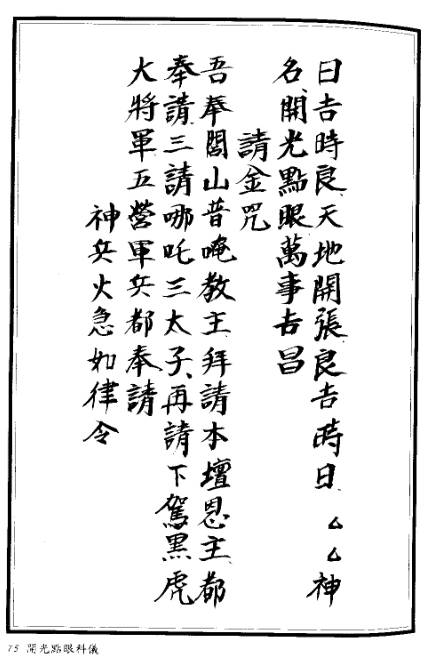 日吉時良、天地開張良吉時日、厶厶神
名、開光點眼萬事吉昌
請金咒
吾奉閭山昔唵教主拜請本壇恩主、都
奉請三請哪吒三太子、再請下駕黑虎
大將軍五營軍兵都奉請
神兵火急如律令
75 開光點眼科儀